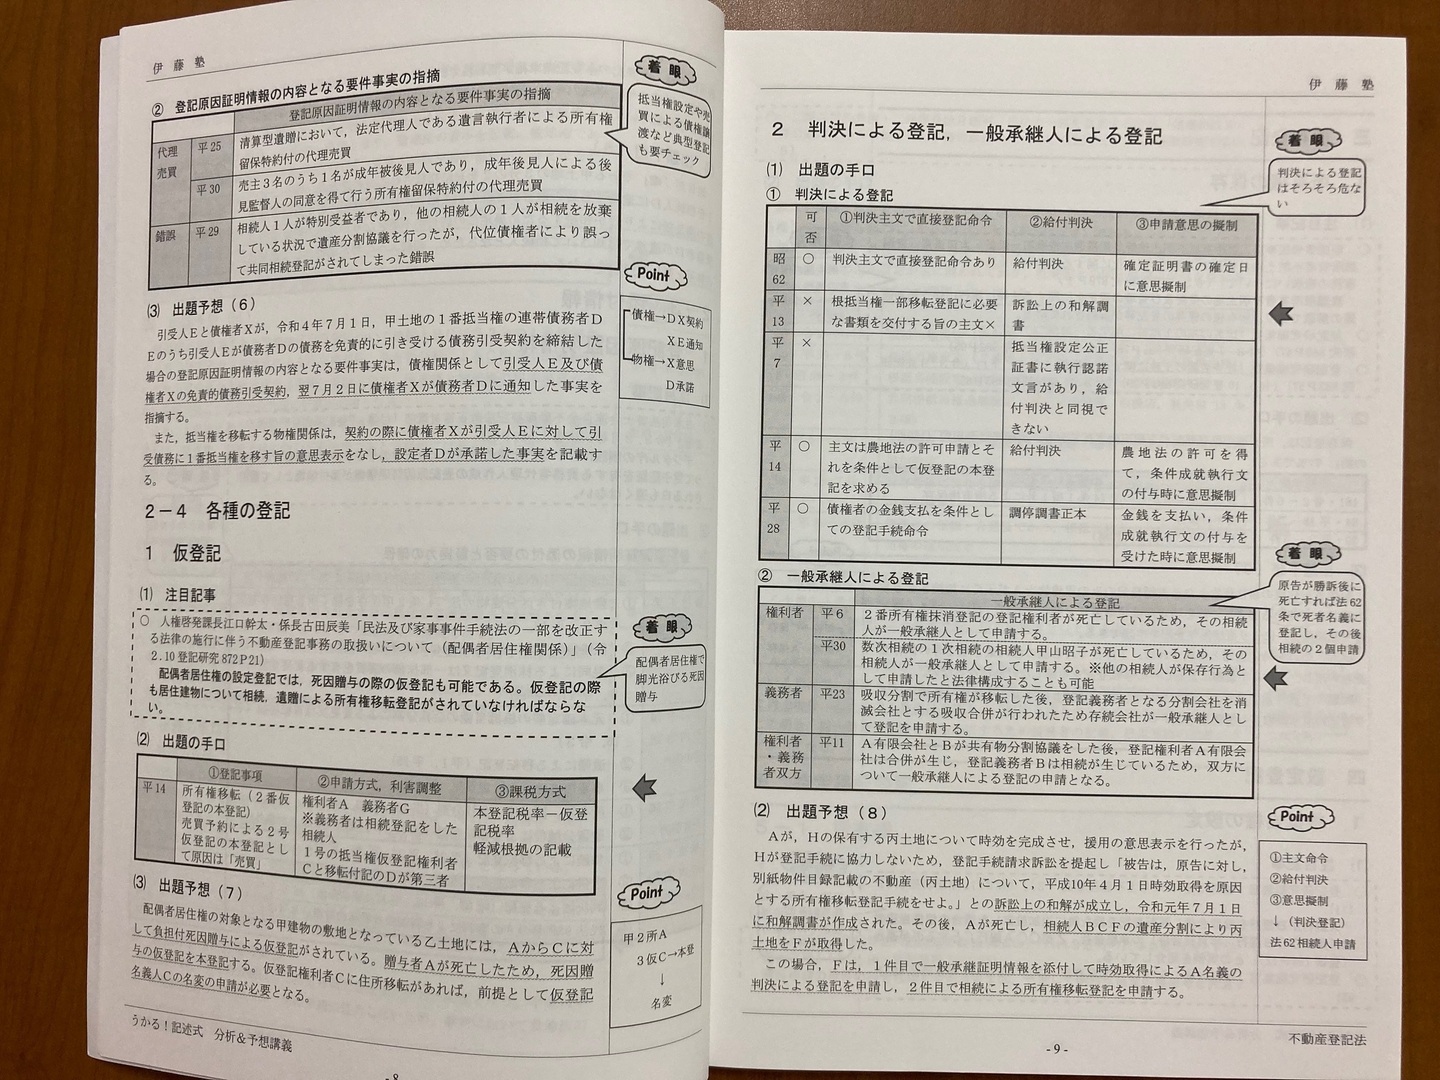 伊 藤 塾
② 登記原因証明情報の内容となる要件事実の指摘
登記原因証明情報の内容となる要件事実の指摘
代理
売買
平25
清算型遺贈において，法定代理人である遺言執行者による所有権
留保特約付の代理売買
平30
売主３名のうち１名が成年被後見人であり，成年後見人による後
見監督人の同意を得て行う所有権留保特約付の代理売買
錯誤
平29
相続人１人が特別受益者であり，他の相続人の１人が相続を放棄
している状況で遺産分割協議を行ったが，代位債権者により誤っ
て共同相続登記がされてしまった錯誤
着 眼
抵当権設定や売
買による債権譲
渡など典型登記
も要チェック
⑶ 出題予想（６）
引受人Ｅと債権者Ｘが，令和４年７月１日，甲土地の１番抵当権の連帯債務者Ｄ
Ｅのうち引受人Ｅが債務者Ｄの債務を免責的に引き受ける債務引受契約を締結した
場合の登記原因証明情報の内容となる要件事実は，債権関係として引受人Ｅ及び債
権者Ｘの免責的債務引受契約，翌７月２日に債権者Ｘが債務者Ｄに通知した事実を
指摘する。
また，抵当権を移転する物権関係は，契約の際に債権者Ｘが引受人Ｅに対して引
受債務に１番抵当権を移す旨の意思表示をなし，設定者Ｄが承諾した事実を記載す
る。
Point
債権→ＤＸ契約
ＸＥ通知
物権→Ｘ意思
Ｄ承諾
２－４ 各種の登記
１ 仮登記
⑴ 注目記事
○ 人権啓発課長江口幹太・係長古田辰美「民法及び家事事件手続法の一部を改正す
る法律の施行に伴う不動産登記事務の取扱いについて（配偶者居住権関係）」（令
２.10登記研究872Ｐ21）
配偶者居住権の設定登記では，死因贈与の際の仮登記も可能である。仮登記の際
も居住建物について相続，遺贈による所有権移転登記がされていなければならな
い。
着 眼
配偶者居住権で
脚光浴びる死因
贈与
⑵ 出題の手口
①登記事項
②申請方式，利害調整
③課税方式
平14
所有権移転（２番仮
登記の本登記）
売買予約による２号
仮登記の本登記とし
て原因は「売買」
権利者Ａ 義務者Ｇ
※義務者は相続登記をした
相続人
１号の抵当権仮登記権利者
Ｃと移転付記のＤが第三者
本登記税率－仮登
記税率
軽減根拠の記載
⑶ 出題予想（７）
配偶者居住権の対象となる甲建物の敷地となっている乙土地には，ＡからＣに対
して負担付死因贈与による仮登記がされている。贈与者Ａが死亡したため，死因贈
与の仮登記を本登記する。仮登記権利者Ｃに住所移転があれば，前提として仮登記
名義人Ｃの名変の申請が必要となる。
Point
甲２所Ａ
３仮Ｃ→本登
↓
名変
うかる！記述式 分析＆予想講義
- 8
伊 藤 塾
２ 判決による登記，一般承継人による登記
⑴ 出題の手口
① 判決による登記
着 眼
判決による登記
はそろそろ危な
い
可
否
①判決主文で直接登記命令
②給付判決
③申請意思の擬制
昭
62
○
判決主文で直接登記命令あり
給付判決
確定証明書の確定日
に意思擬制
平
13
×
根抵当権一部移転登記に必要
な書類を交付する旨の主文×
訴訟上の和解調
書
平
7
×
抵当権設定公正
証書に執行認諾
文言があり，給
付判決と同視で
きない
平
14
○
主文は農地法の許可申請とそ
れを条件として仮登記の本登
記を求める
給付判決
農地法の許可を得
て，条件成就執行文
の付与時に意思擬制
平
28
○
債権者の金銭支払を条件とし
ての登記手続命令
調停調書正本
金銭を支払い，条件
成就執行文の付与を
受けた時に意思擬制
② 一般承継人による登記
一般承継人による登記
権利者
平６
２番所有権抹消登記の登記権利者が死亡しているため，その相続
人が一般承継人として申請する。
平30
数次相続の１次相続の相続人甲山昭子が死亡しているため，その
相続人が一般承継人として申請する。※他の相続人が保存行為と
して申請したと法律構成することも可能
義務者
平23
吸収分割で所有権が移転した後，登記義務者となる分割会社を消
滅会社とする吸収合併が行われたため存続会社が一般承継人とし
て登記を申請する。
権利者
・義務
者双方
平11
Ａ有限会社とＢが共有物分割協議をした後，登記権利者Ａ有限会
社は合併が生じ，登記義務者Ｂは相続が生じているため，双方に
ついて一般承継人による登記の申請となる。
着 眼
原告が勝訴後に
死亡すれば法62
条で死者名義に
登記し，その後
相続の２個申請
⑵ 出題予想（８）
Ａが，Ｈの保有する丙土地について時効を完成させ，援用の意思表示を行ったが，
Ｈが登記手続に協力しないため，登記手続請求訴訟を提起し「被告は，原告に対し，
別紙物件目録記載の不動産（丙土地）について，平成10年４月１日時効取得を原因
とする所有権移転登記手続をせよ。」との訴訟上の和解が成立し，令和元年７月１日
に和解調書が作成された。その後，Ａが死亡し，相続人ＢＣＦの遺産分割により丙
土地をＦが取得した。
この場合，Ｆは，１件目で一般承継証明情報を添付して時効取得によるＡ名義の
判決による登記を申請し，２件目で相続による所有権移転登記を申請する。
Point
①主文命令
②給付判決
③意思擬制
↓（判決登記）
法62相続人申請
不動産登記法
- 9 -